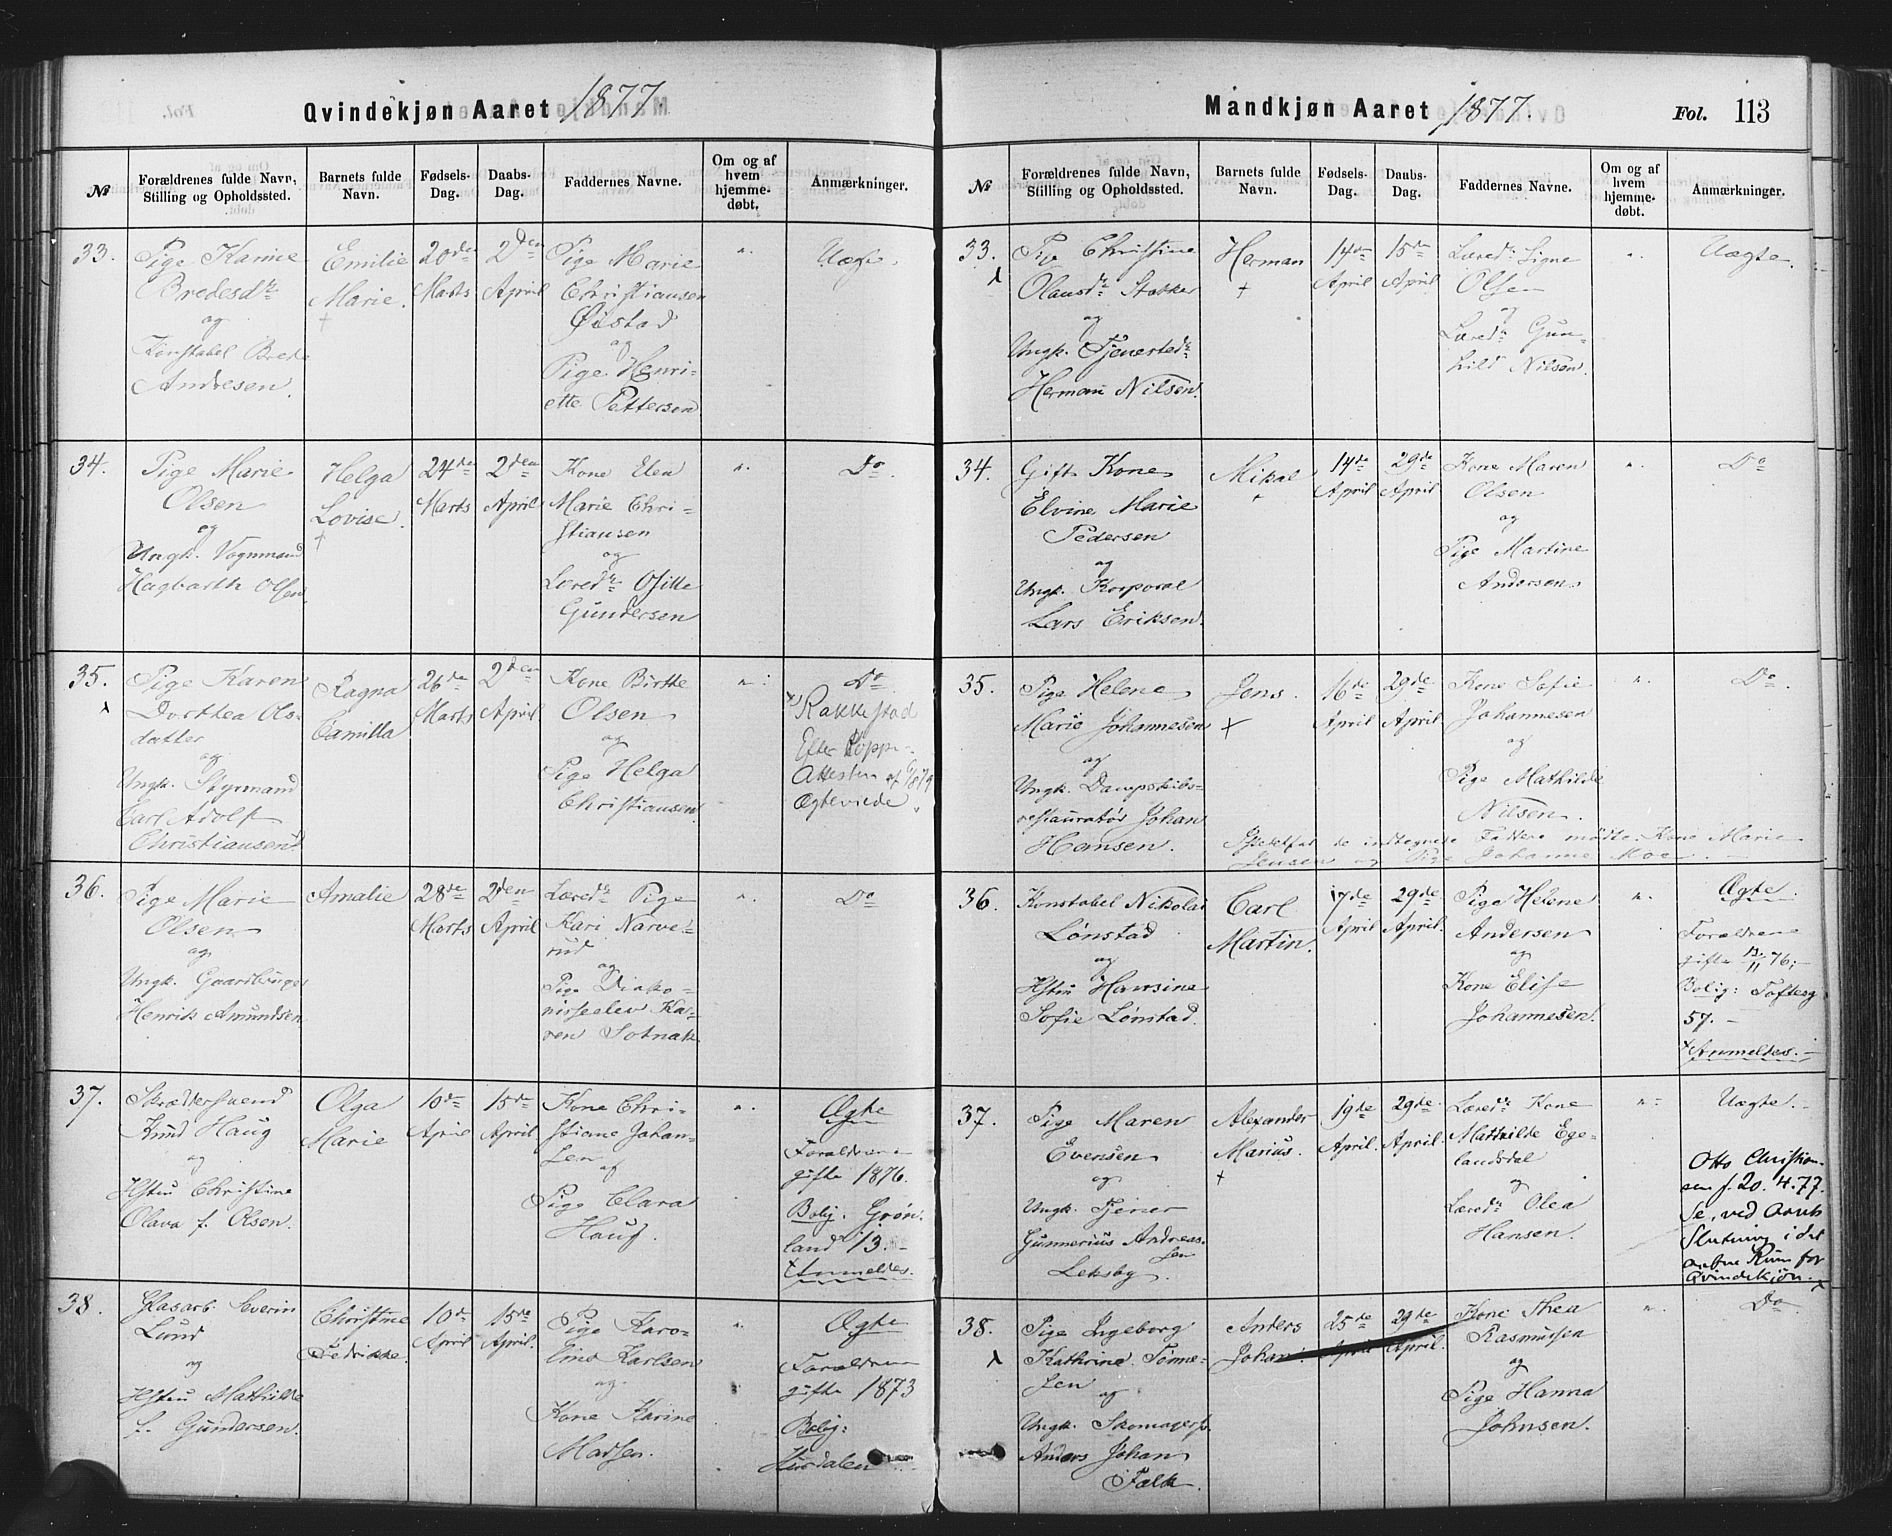 Qvindekjøn Aaret 1877.
№
Forældrenes fulde Navn, Stilling og Opholdssted.
Barnets fulde Navn.
Fødsels-Dag.
Daabs-Dag.
Faddernes Navne.
Om og af hvem hjemmedøbt.
Anmærkninger.
33.
Pige Karine
Bredesdr
og
Konstabel Brede
Andresen.
Emilie
Marie.
20de
Marts
2den
April
Pige Marie
Christiansen
Øistad
og
Pige Henri-
ette Pettersen
"
Uægte.
34.
Pige Marie
Olsen
og
Ungk. Vognmand
Hagbarth Olsen.
Helga
Lovise.
24de
Marts
2den
April
Kone Elen
Marie Chri-
stiansen
og
Læred.
Gundersen
"
Do.
35.
Pige Karen
Dorthea Ols-
datter
og
Ungk. Styrmand
Carl Adolf
Christiansen
Ragna
Camilla
26de
Marts
2den
April
Kone Birthe
Olsen
og
Pige Helga
Christiansen
"
Do
Rakkestad
Efter
Attesten af
Ægteviede
36.
Pige Marie
Olsen
og
Ungk. Gaardbruger
Henrik Amundsen
Amalie
28de
Marts
2den
April
Læredr Pige
Kari Narve-
rud
og
Pige Diako-
nisseelev Ka-
ren
"
Do
37.
Skræddersvend
Knud Haug
og
Hstru Christine
Olava f. Olsen.
Olga
Marie
10de
April
15de
April
Kone Chri-
stiane Johan-
sen
af
Pige Clara
Haug.
"
Ægte
Forældrene
gifte 1876.
Bolig. Grøn-
land 13.
Anmeldes.
38.
Glasarb. Severin
Lund
og
Hstru Mathilde
f. Gundersen.
Christine
Fredrikke.
10de
April
15de
April.
Pige Karo-
line Karlsen
og
Kone Karine
Madsen.
"
Ægte
Forældrene
gifte 1873
Bolig:
Mandkjøn Aaret 1877
Fol. 113
№
Forældrenes fulde Navn, Stilling og Opholdssted.
Barnets fulde Navn.
Fødsels-Dag.
Daabs-Dag.
Faddernes Navne.
Om og af hvem hjemmedøbt.
Anmærkninger.
33.
Pige Christine
Olausdr
og
Ungk. Tjenestedr
Herman Nilsen.
Herman
14de
April
15de
April
Læredr Signe
Olsen
og
Læredr Gun-
hild Nilson.
"
Uægte.
34.
Gift Kone
Elvine Marie
Pedersen
og
Ungk. Korporal
Lars Eriksen.
Mikal
14de
April
29de
April
Kone Maren
Olsen
og
Pige Martine
Andersen
"
Do
35.
Pige Helene
Marie Johannesen
og
Ungk. Dampskibs-
restauratør Johan
Hansen.
Jens.
16de
April
29de
April
Kone Sofie
Johannesen
og
Pige Mathilde
Nilsen.
"
Do
Istedetfor de indtegnede Faddere mødte: Kone Marie
Jensen og Pige Johanne Moe.
36.
Konstabel Nikolai
Lønstad
og
Hstru Hansine
Sofie Lønstad.
Carl
Martin.
17de
April
29de
April.
Pige Helene
Andersen
og
Kone Elise
Johannesen.
"
Ægte.
Forældrene
gifte 13/11 76;
Bolig: Toftesg
57.
Anmeldes.
37.
Pige Maren
Evensen
og
Ungk. Tjener
Gunnerius Andreas-
sen
Leksby.
Alexander
Marius.
19de
April.
29de
April.
Læredr Kone
Mathilde Ege-
landsdal
og
Læredr Olea
Hansen.
"
Uægte.
Otto Christian-
sen f. 20.4.77.
Se, ved Aarets
Slutning i det
aabne Rum for
Qvindekjøn.
38.
Pige Ingeborg
Kathrine Tønne-
sen
og
Ungk. Skomagersv.
Anders Johan
Falk.
Anders
Johan.
25de
April
29de
April.
Kone Thea
Rasmussen
og
Pige Hanna
Johnsen.
"
Do.